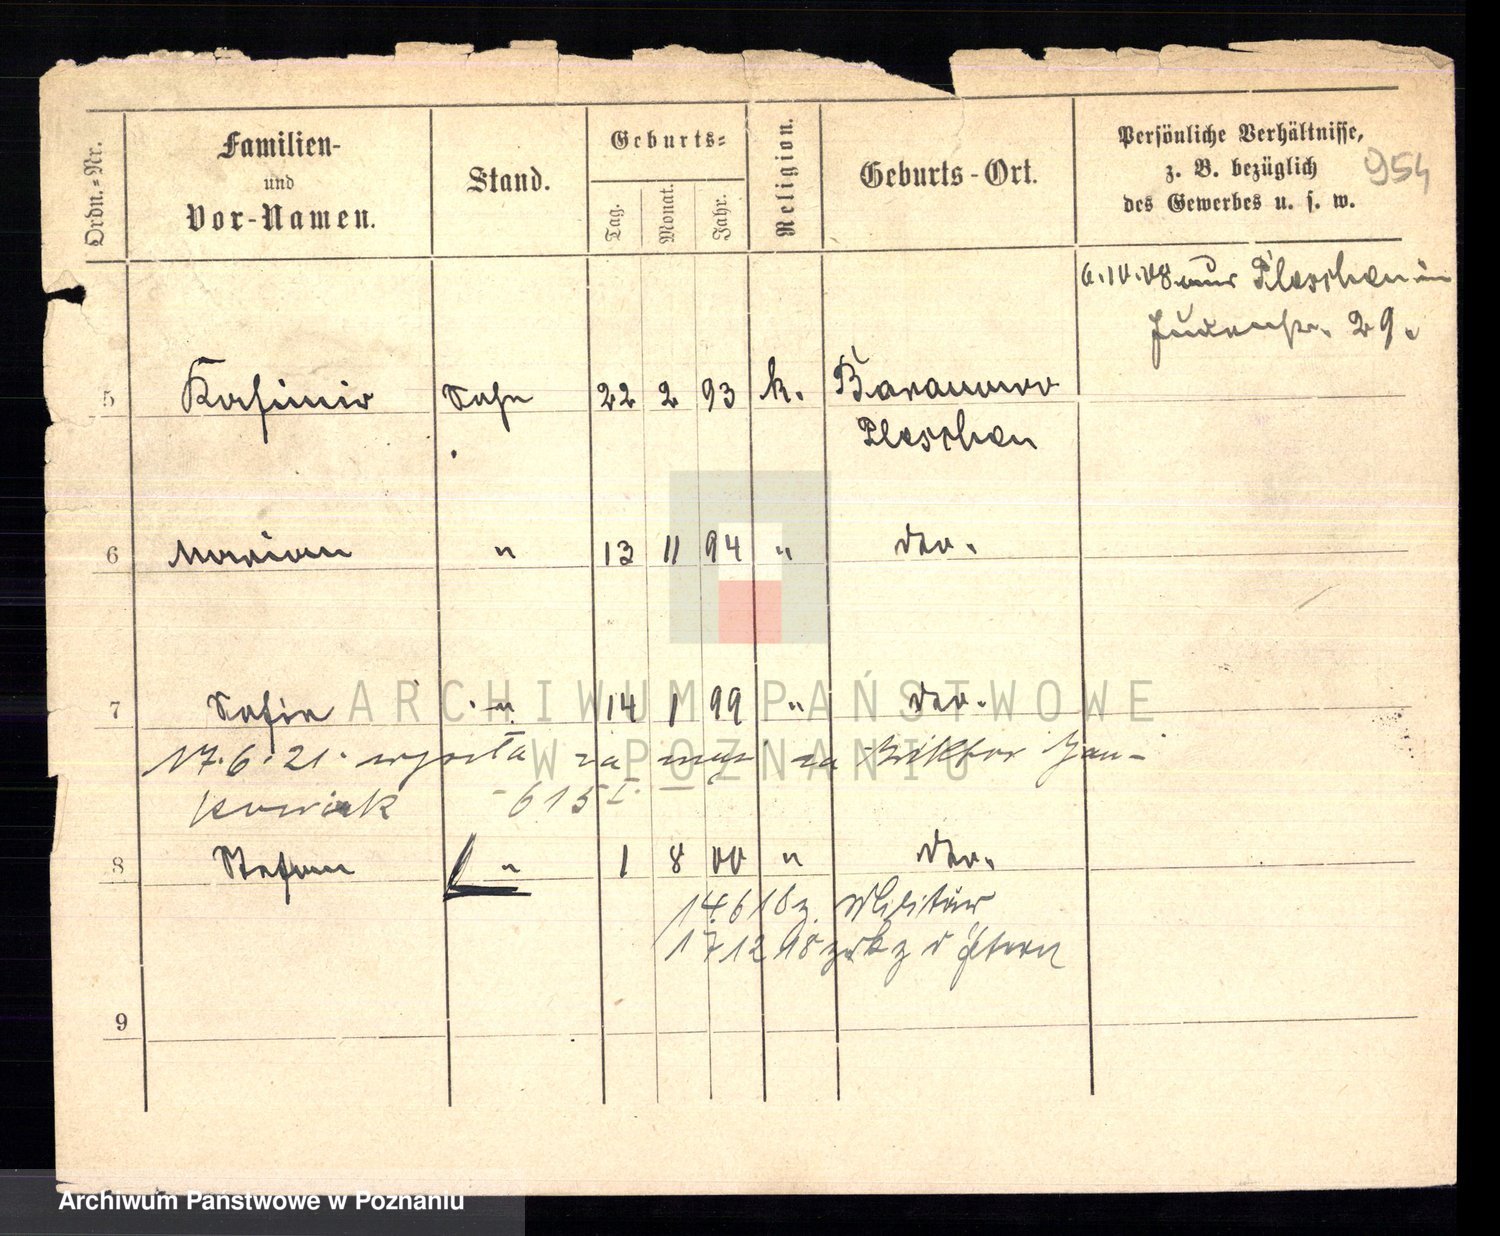 Ordn.=Nr.
Familien-
und
Vor-Namen.
Stand.
Geburts=
Tag.
Monat.
Jahr.
Religion.
Geburts-Ort.
Persönliche Verhältnisse,
z. B. bezüglich
des Gewerbes u. s. w.
954
6.10.08 aus Pleschen in
Judenstr. 29.
5 Kasimir Sohn 22 2 93 k. Baranowo
Pleschen
6 Marian " 13 11 94 " do.
7 Sofia " 14 1 99 " do.
17.6.21. wyszła za mąż za Wiktor Jan-
kowiak - 615 I.
8 Stefan " 1 8 00 " do.
14 6 18 z. Militär
17 12 18 zurk z d Eltern
9
ARCHIWUM PAŃSTWOWE
W POZNANIU
Archiwum Państwowe w Poznaniu